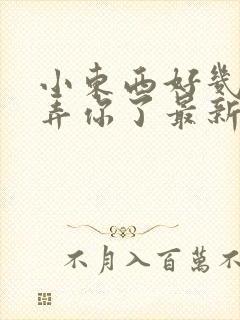 小東西好幾
弄你了最新
不月入百萬不